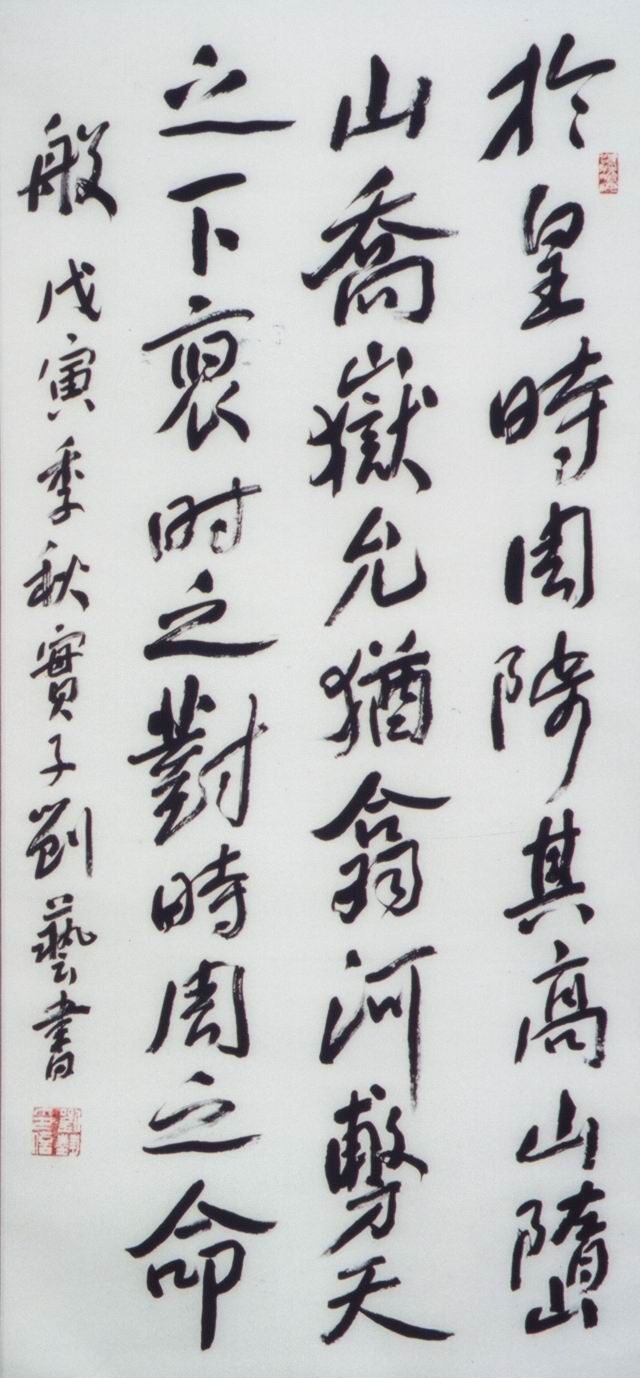 於皇時周陟其高山嶞
山喬嶽允猶翕河敷天
之下裒时之對時周之命
般 戊寅季秋實子劉藝書